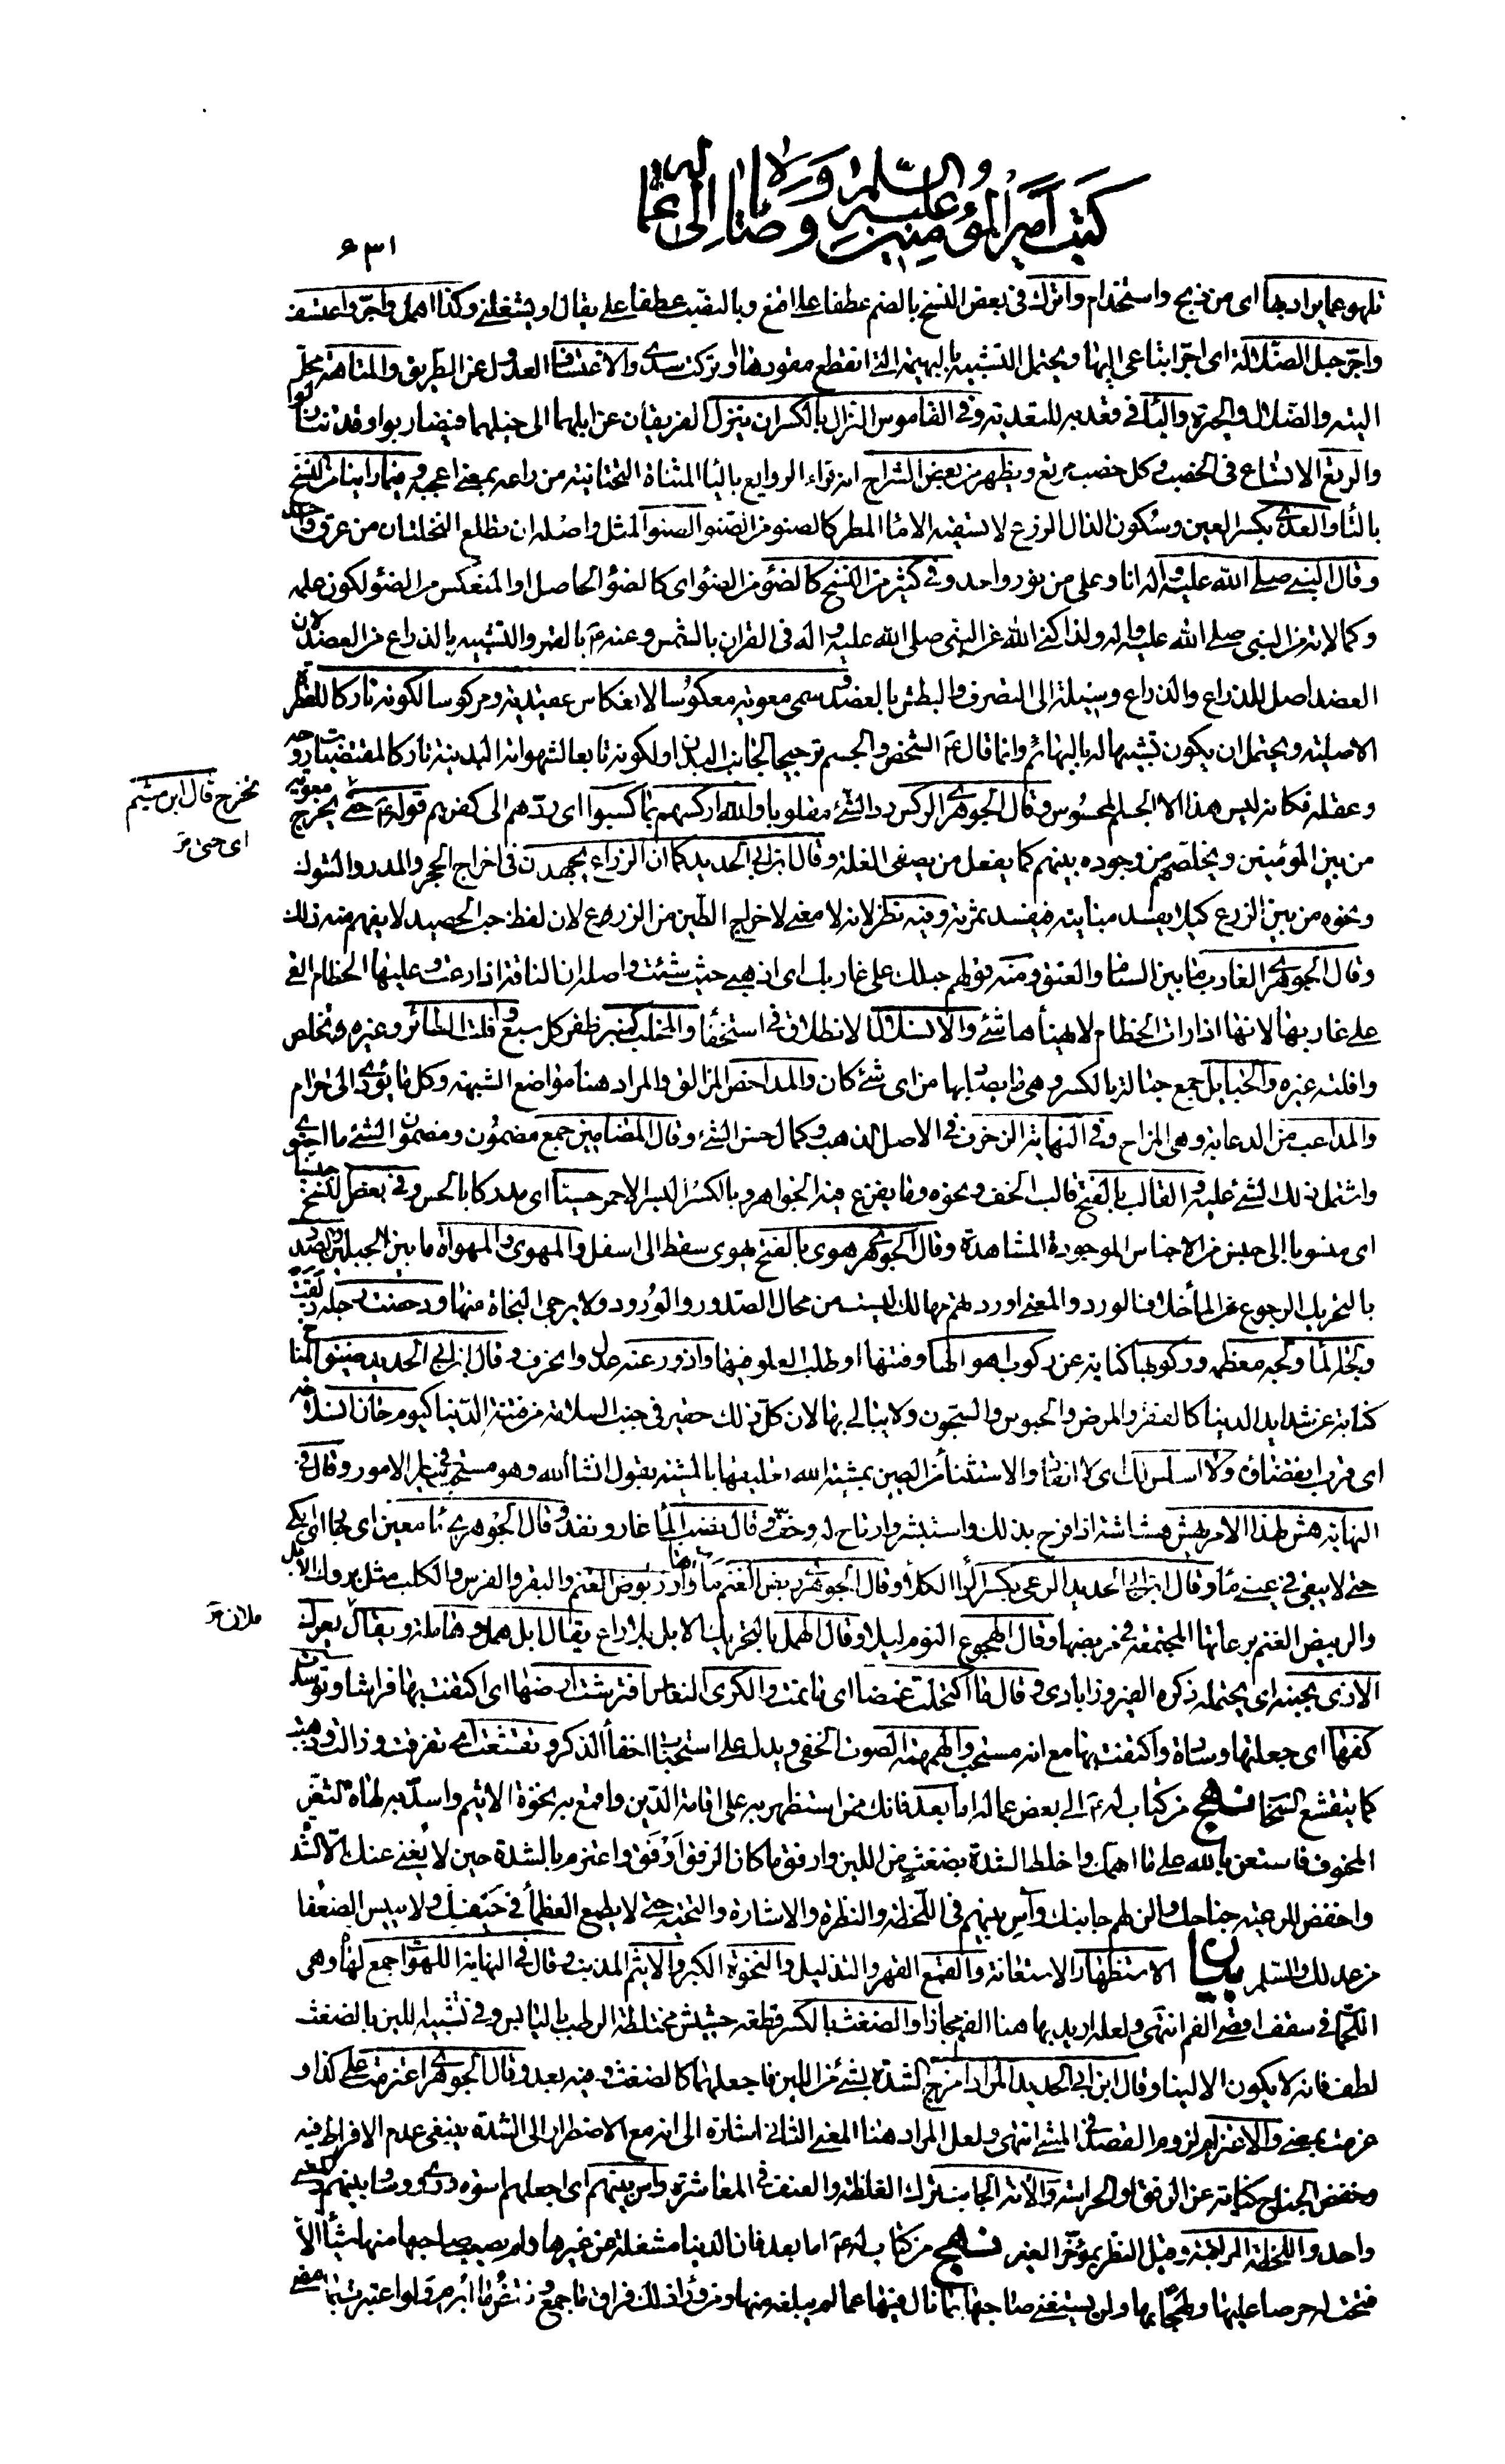 كتب أمير المؤمنين عليه السلام ووصاياه إلى عماله
٦٣١
تلهو عما يراد بها اى من ذبح واستخدام واترك فى بعض النسخ بالضم عطفا على امنع وبالنصب عطفا على يقال او يشغلنى وكذا اهمل واجر واعتسف
واجر حبل الضلالة اى اجر اتباعى اليها ويحتمل التشبيه بالبهيمة التى انقطع مقودها او تركت سدى والاعتساف العدول عن الطريق والمتاهة محل
التيه والضلال والحيرة والباء فى مقدمه للتعدية وفى القاموس النزال بالكسر ان ينزل الفريقان عن ابلهما الى خيلهما فيضاربوا وقد تنازلوا
والرتع الاتساع فى الخصب وكل خصب مرتع ويظهر من بعض الشراح انه قراء الروايع بالياء المثناة التحتانية من راعه بمعنى اعجبه وفيما راينا من النسخ
بالتاء والعذى بكسر العين وسكون الذال الزرع لا يسقيه الا ماء المطر كالصنو من الصنو الصنو المثل واصله ان تطلع النخلتان من عرق واحد
وقال النبى صلى الله عليه واله انا وعلى من نور واحد وفى كثير من النسخ كالضوء من الضوء اى كالضوء الحاصل او المنعكس من الضوء لكون علمه
وكمالاته من النبى صلى الله عليه واله ولذا كنى الله عن النبى صلى الله عليه واله فى القران بالشمس وعنه ع بالقمر والتشبيه بالذراع من العضد لان
العضد اصل للذراع والذراع وسيلة الى التصرف والبطش بالعضد وسمى معوية معكوسا لانعكاس عقيدته ومركوسا لكونه تاركا للفطرة
الاصلية ويحتمل ان يكون تشبيها له بالبهائم وانما قال ع الشخص والجسم ترجيحا لجانب البدن او لكونه تابعا لشهواته البدنية تاركا لمقتضيات روحه
وعقله فكانه ليس هذا الا الجسم المحسوس وقال الجوهرى الركس رد الشىء مقلوبا والله اركسهم بما كسبوا اى ردهم الى كفرهم قوله ع حتى يخرج معوية
تخرج قال ابن ميثم
اى حتى
من بين المؤمنين ويخلصهم من وجوده بينهم كما يفعل من يصفى الغلة وقال ابن ابى الحديد كما ان الزراع يجتهدون فى اخراج الحجر والمدر والشوك
ونحوه من بين الزرع كيلا يفسد منابته فيفسد ثمرته وفيه نظر لانه لا معنى لاخراج الطين من الزرع لان لفظ حب الحصيد لا يفهم منه ذلك
وقال الجوهرى الغارب ما بين السنام والعنق ومنه قولهم حبلك على غاربك اى اذهبى حيث شئت واصله ان الناقة اذا رعت وعليها الخطام القى
على غاربها لانها اذا رات الخطام لا يهنأها شىء والانسلال الانطلاق فى استخفاء والمخلب كمنبر ظفر كل سبع وافلت الطائر وغيره وتخلص
وافلته غيره والحبايل جمع حبالة بالكسر وهى ما يصاد بها من اى شىء كان والمداحض المزالق والمراد هنا مواضع الشبهة وكل ما يؤدى الى حرام
والمداعب من الدعابة وهى المزاح وفى النهاية الزخرف فى الاصل الذهب وكمال حسن الشىء وقال المضامين جمع مضمون ومضمون الشىء ما احتوى
واشتمل ذلك الشىء عليه والقالب بالفتح قالب الخف ونحوه وما يفرغ فيه الجواهر وبالكسر البسر الاحمر حسيا اى مدركا بالحس وفى بعض النسخ جنسيا
اى منسوبا الى جنس من الاجناس الموجودة المشاهدة وقال الجوهرى هوى بالفتح يهوى سقط الى اسفل والمهوى والمهواة ما بين الجبلين والصدر
بالتحريك الرجوع عن الماء خلاف الورد والمعنى اوردتهم مهالك ليست من محال الصدور والورود ولا يرجى النجاة منها ودحضت رجله زلقت
ولجة الماء ولجه معظمه وركوبها كناية عن ركوب اهوالها وفتنها او طلب العلو فيها وازور عنه عدل وانحرف وقال ابن ابى الحديد ضيق المناخ
كناية عن شدايد الدنيا كالفقر والمرض والحبوس والسجون ولا يبالى بها لان كل ذلك حقير فى جنب السلامة من فتنة الدنيا كيوم حان انسلاخه
اى قرب انقضاؤه ولا اسلس لك اى لا انقاد والاستثناء من اليمين بمشية الله تعليقها بالمشية بقول انشاء الله وهو مستحب فى ساير الامور وقال فى
النهاية هش لهذا الامر يهش هشاشة اذا فرح بذلك واستبشر وارتاح له وخف وقال نضب الماء غار ونفد وقال الجوهرى ماء معين اى جار اى ابكى
حتى لا يبقى فى عينى ماء وقال ابن ابى الحديد الرعى بكسر الراء الكلأ وقال الجوهرى ربض الغنم مأواها وربوض الغنم والبقر والفرس والكلب مثل بروك الابل
والربيض الغنم برعاتها المجتمعة فى مربضها وقال الهجوع النوم ليلا وقال الهمل بالتحريك الابل بلا راع يقال ابل همل وهاملة ويقال يعرك
ملان
الاذى بجنبه اى يحتمله ذكره الفيروزابادى وقال ما اكتحلت غمضا اى ما نمت والكرى النعاس افترشت ارضها اى اكتفت بها فراشا وتوسدت
كفها اى جعلتها وسادة واكتفت بها مع انه مستحب والهمهمة الصوت الخفى ويدل على استحباب اخفاء الذكر وتقشعت اى تفرقت وزالت وذهبت
كما يتقشع السحاب نهج من كتاب له ع الى بعض عماله اما بعد فانك ممن استظهر به على اقامة الدين واقمع به نخوة الاثيم واسد به لهاة الثغر
المخوف فاستعن بالله على ما اهمك واخلط الشدة بضغث من اللين وارفق ما كان الرفق اَرْفَقَ واعتزم بالشدة حين لا يغنى عنك الا الشدة
واخفض للرعية جناحك والن لهم جانبك وآس بينهم فى اللحظة والنظرة والاشارة والتحية حتى لا يطمع العظماء فى حيفك ولا ييأس الضعفاء
من عدلك والسلم بيان الاستظهار الاستعانة والقمع القهر والتذليل والنخوة الكبر والاثيم المذنب وقال فى النهاية اللهوات جمع لهاة وهى
اللحمات فى سقف اقصى الفم انتهى ولعله اريد بها هنا الفم مجازا والضغث بالكسر قطعة حشيش مختلطة الرطب باليابس وفى تشبيه اللين بالضغث
لطف فانه لا يكون الا لينا وقال ابن ابى الحديد المراد امزج الشدة بشىء من اللين فاجعلهما كالضغث وفيه بعد وقال الجوهرى اعتزمت على كذا و
عزمت بمعنى والاعتزام لزوم القصد فى المشى انتهى ولعل المراد هنا المعنى الثانى اشارة الى انه مع الاضطرار الى الشدة ينبغى عدم الافراط فيه
وخفض الجناح كناية عن الرفق او الحراسة والانة الجانب ترك الغلظة والعنف فى المعاشرة واس بينهم اى اجعلهم اسوة وروى وساو بينهم والمعنى
واحد واللحظة المراقبة وقيل النظر بمؤخر العين نهج من كتاب له ع اما بعد فان الدنيا مشغلة عن غيرها ولم يصب صاحبها منها شيئا الا
فتحت له حرصا عليها ولهجا بها ولن يستغنى صاحبها بما نال فيها عما لم يبلغه منها ومن وراء ذلك فراق ما جمع ونقض ما ابرم ولو اعتبرت بما مضى